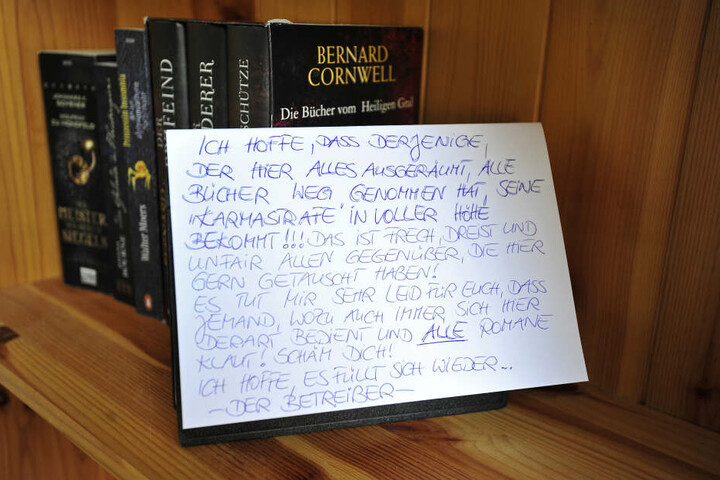 BERNARD
CORNWELL
Die Bücher vom Heiligen Gral
FEIND
DERER
SCHÜTZE
Walter Moers
MEISTER
SIEGELS
ICH HOFFE, DASS DERJENIGE,
DER HIER ALLES AUSGERÄUMT, ALLE
BÜCHER WEG GENOMMEN HAT, SEINE
"KARMASTRAFE" IN VOLLER HÖHE
BEKOMMT!!! DAS IST FRECH, DREIST UND
UNFAIR ALLEN GEGENÜBER, DIE HIER
GERN GETAUSCHT HABEN!
ES TUT MIR SEHR LEID FÜR EUCH, DASS
JEMAND, WOZU AUCH IMMER, SICH HIER
DERART BEDIENT UND ALLE ROMANE
KLAUT! SCHÄM DICH!
ICH HOFFE, ES FÜLLT SICH WIEDER...
- DER BETREIBER -